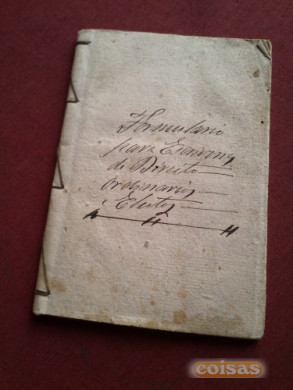 Formulario
para Exames
de Direito
Ordinario,
coisas